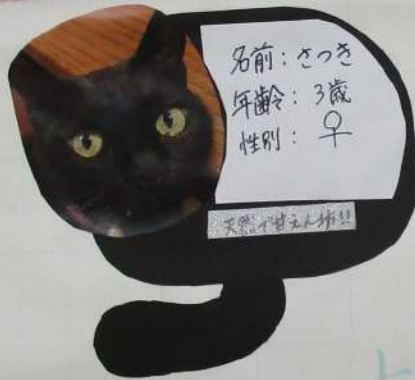 名前：さつき
年齢：3歳
性別：♀
天然で甘えん坊!!